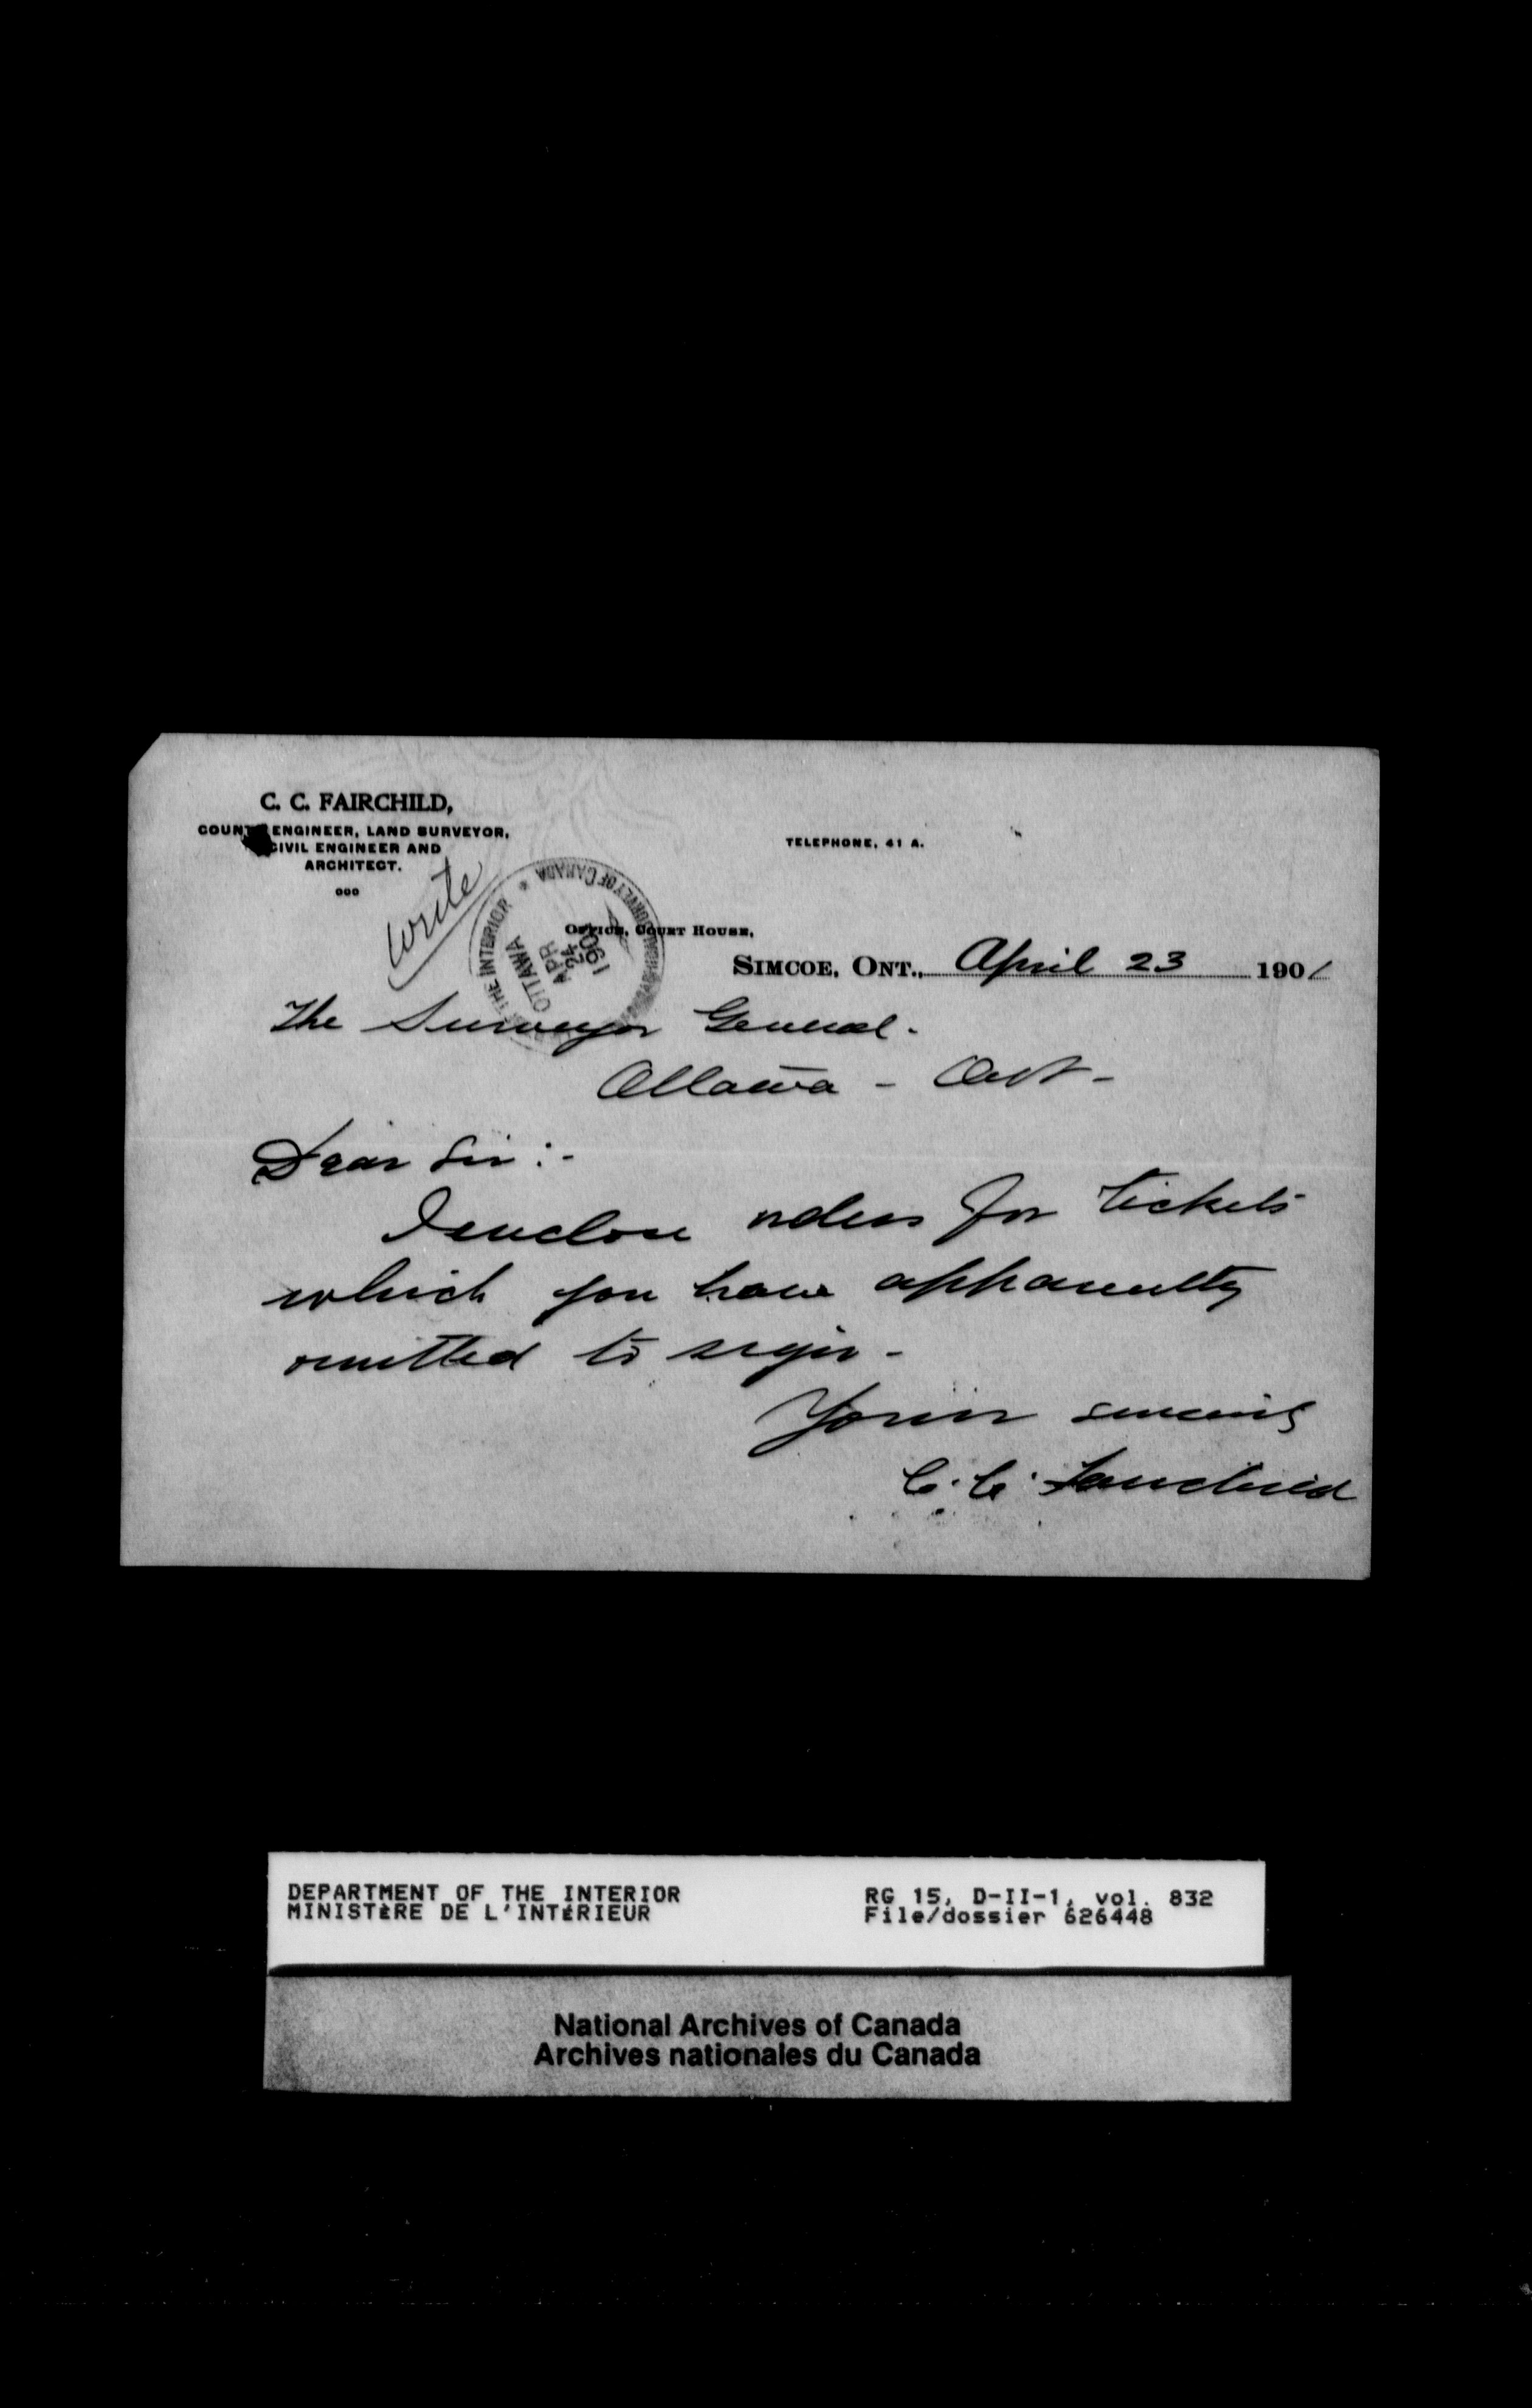 C. C. FAIRCHILD,
COUNTY ENGINEER, LAND SURVEYOR,
CIVIL ENGINEER AND
ARCHITECT.
TELEPHONE, 41 A.
write
THE INTERIOR
SURVEY OF CANADA
OTTAWA
APR
24
1901
OFFICE, COURT HOUSE,
SIMCOE, ONT., April 23 1901
The Surveyor General.
Ottawa - Ont -
Dear Sir :-
I enclose orders for tickets
which you have apparently
omitted to sign -
Yours sincerely
C. C. Fairchild
DEPARTMENT OF THE INTERIOR
MINISTÈRE DE L'INTÉRIEUR
RG 15, D-II-1, vol. 832
File/dossier 626448
National Archives of Canada
Archives nationales du Canada